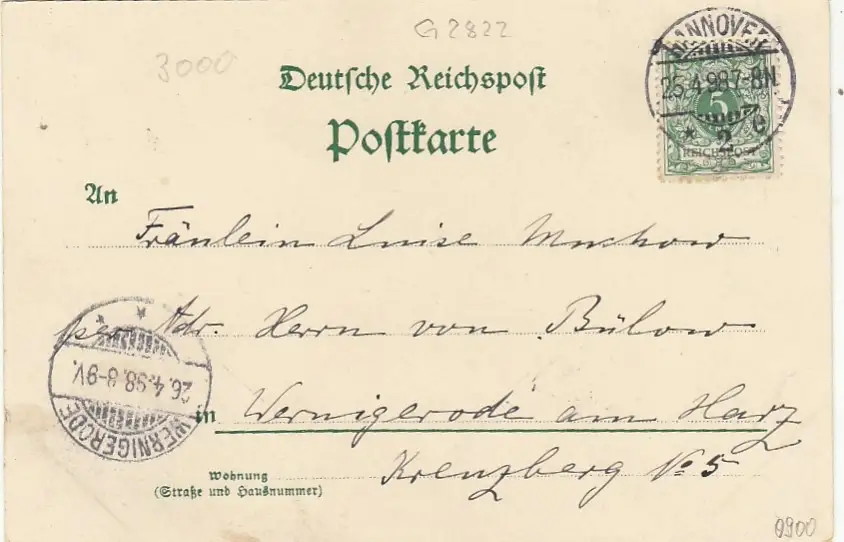 G2822
3000
Deutsche Reichspost
Postkarte
HANNOVER
25.4.98.7-8N.
* 2 C
5
REICHSPOST
An
Fräulein Luise Muchow
per Adr. Herrn von Bülow
in Wernigerode am Harz
Kreuzberg No 5
Wohnung
(Straße und Hausnummer)
WERNIGERODE
26.4.98.8-9V.
* *
0900